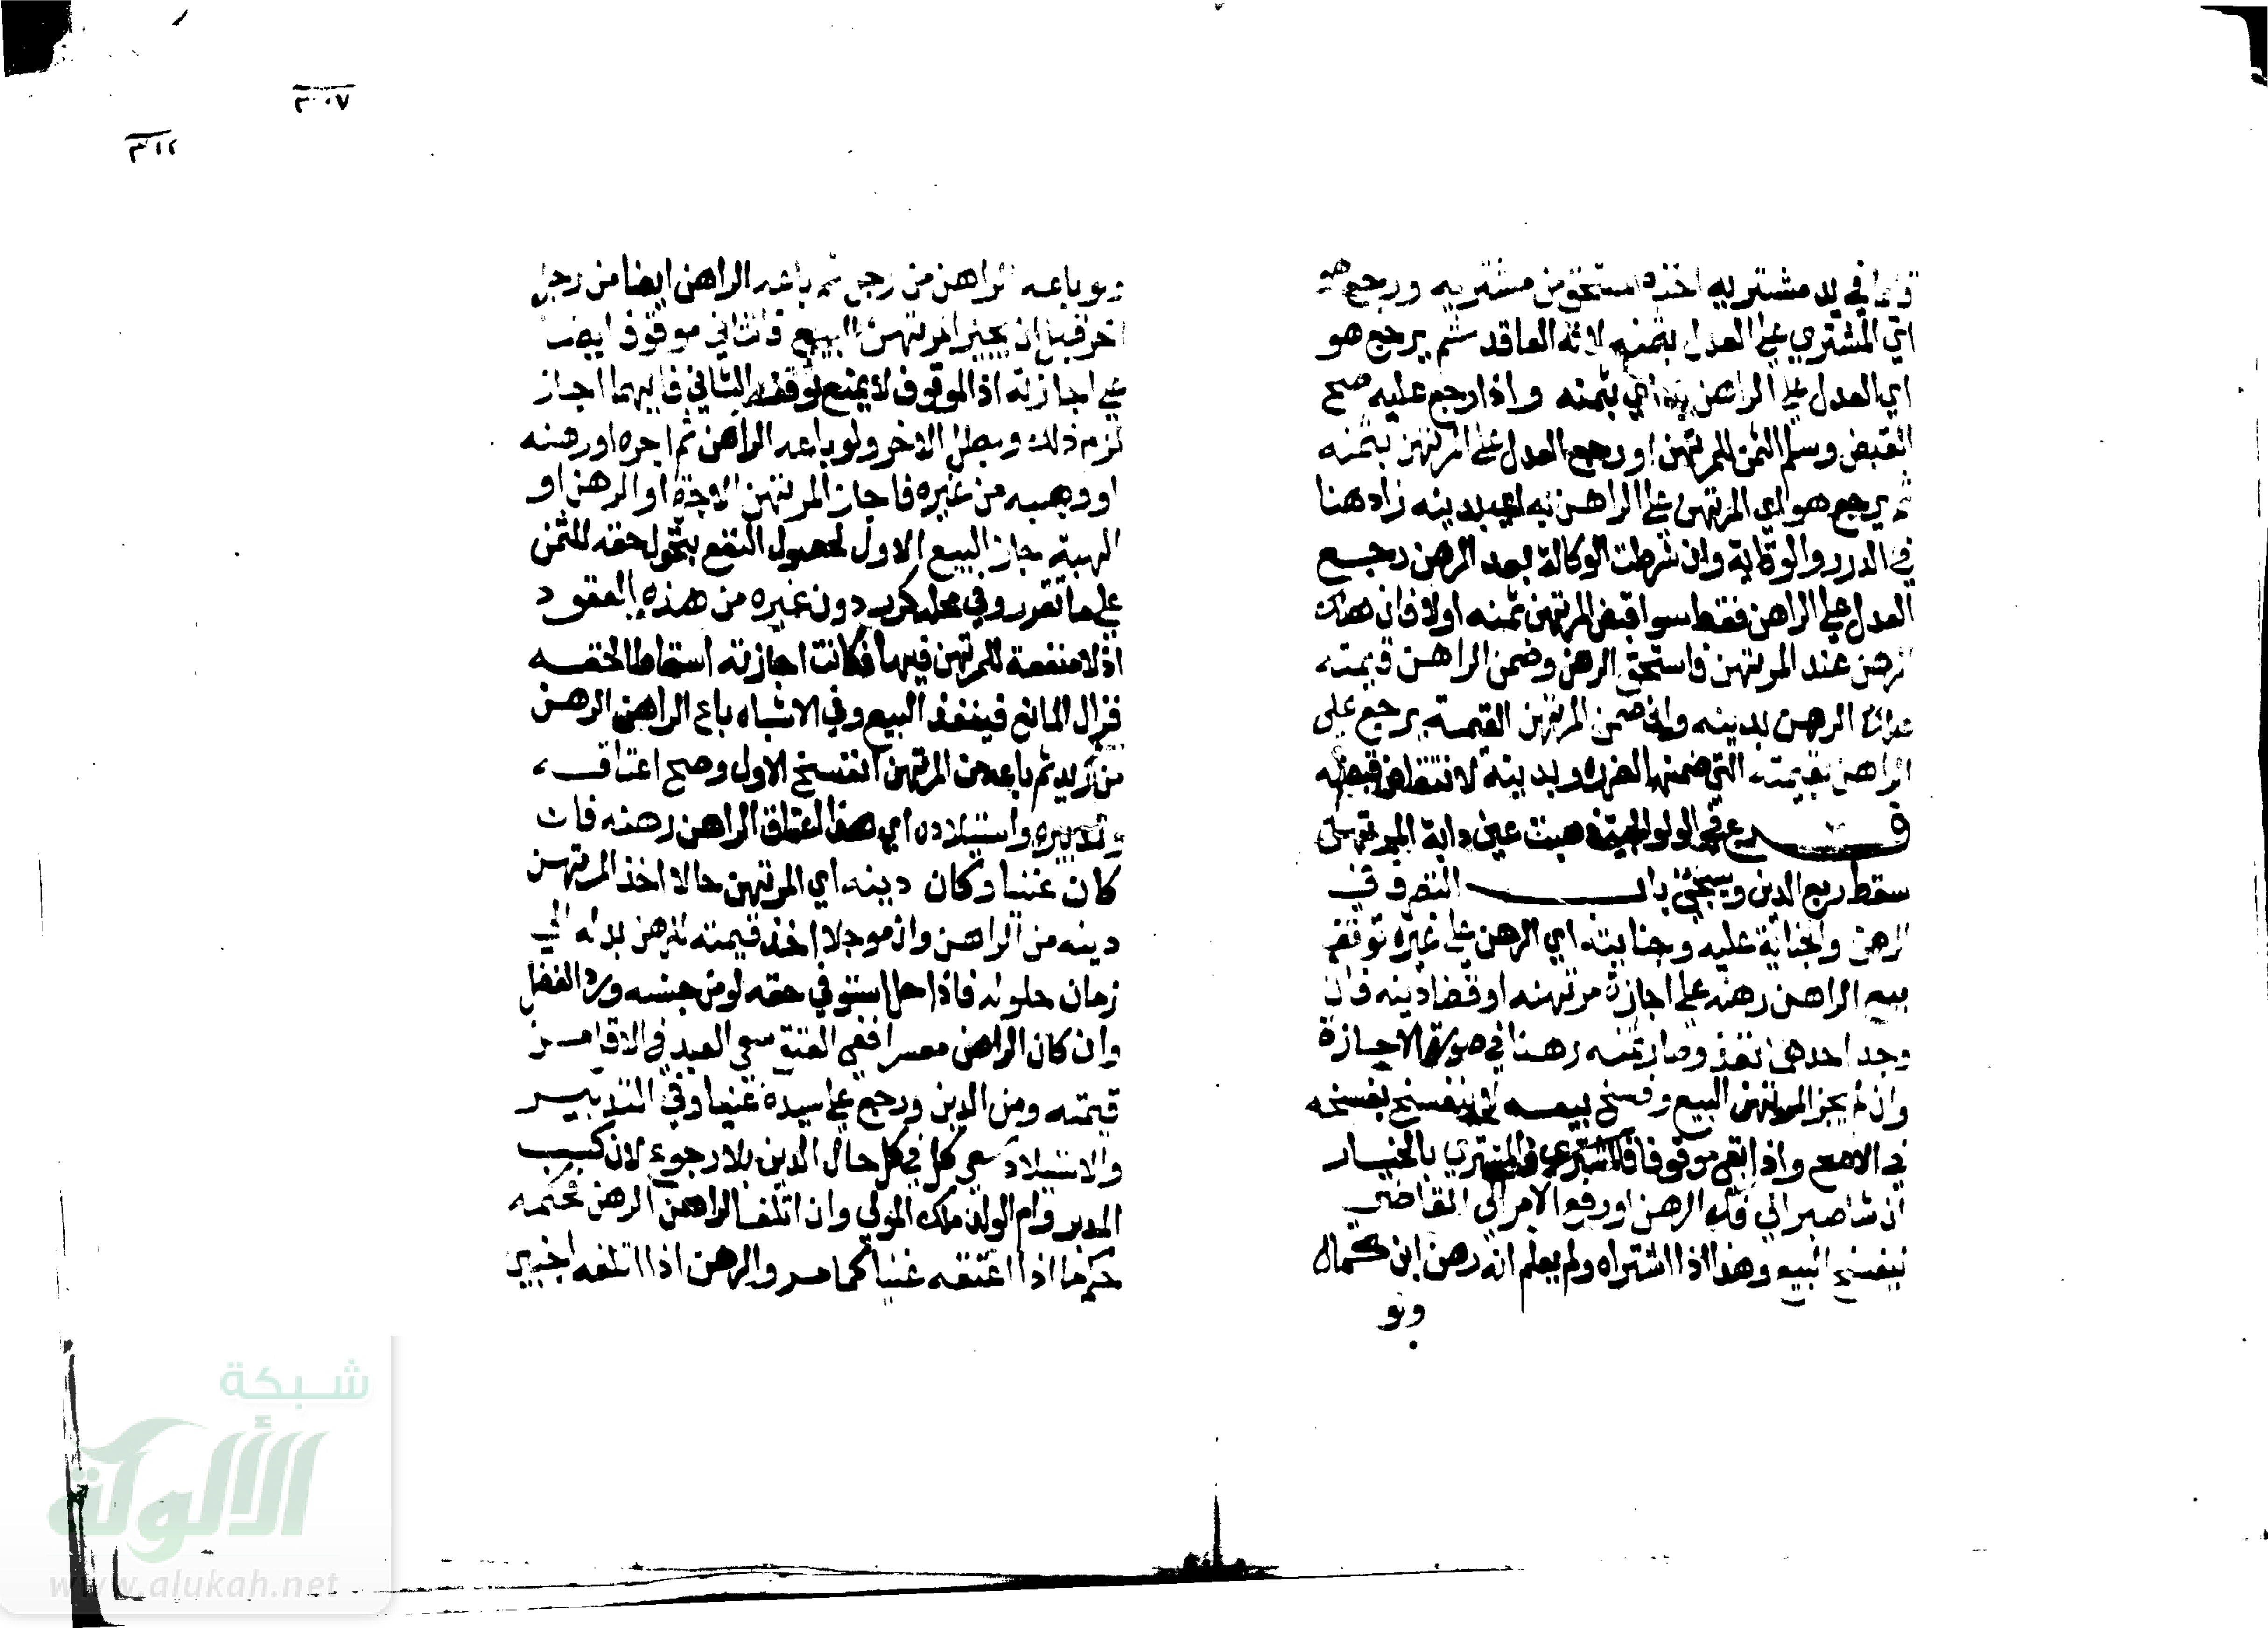 ٣٠٧
٣١٢
قائما في يد مشتريه اخذه المستحق من مشتريه ورجع هو
اي المشتري على العدل بثمنه لانه العاقد ثم يرجع هو
اي العدل على الراهن به اي بثمنه واذا رجع عليه صح
القبض وسلم الثمن للمرتهن او رجع العدل على المرتهن بثمنه
ثم يرجع هو اي المرتهن على الراهن به اي بدينه زاد هنا
في الدرر والوقاية وان شرطت الوكالة بعد الرهن رجع
العدل على الراهن فقط سوا قبض المرتهن ثمنه اولا فان هلك
الرهن عند المرتهن فاستحق الرهن وضمن الراهن قيمته
هلك الرهن بدينه وان ضمن المرتهن القيمة يرجع على
الراهن بقيمته التي ضمنها الضرر وبدينه لانتقاض قبضه
فرع في الولوالجية ذهبت عين دابة المرتهن
سقط ربع الدين وسيجئ باب التصرف في
الرهن والجناية عليه وجنايته اي الرهن على غيره توقف
بيع الراهن رهنه على اجازة مرتهنه او قضا دينه فان
وجد احدهما نفذ وصار ثمنه رهنا في صورة الاجازة
وان لم يجز المرتهن البيع وفسخ بيعه لا ينفسخ بفسخه
في الاصح واذا بقي موقوفا فالمشتري بالخيار
ان شا صبر الى فك الرهن او رفع الامر الى القاضي
ليفسخ البيع وهذا اذا اشتراه ولم يعلم انه رهن ابن كمال
ولو
ولو باعه الراهن من رجل ثم باعه الراهن ايضا من رجل
اخر قبل ان يجيز المرتهن البيع فالثاني موقوف ايضا
على اجازته اذ الموقوف لا يمنع توقف الثاني فايهما اجاز
لزم ذلك وبطل الاخر ولو باعه الراهن ثم اجره او رهنه
او وهبه من غيره فاجاز المرتهن الاجرة او الرهن او
الهبة جاز البيع الاول لحصول النفع بتحول حقه للثمن
على ما تقرر وفي محله كرر دون غيره من هذه العقود
اذ لا منفعة للمرتهن فيها فكانت اجازته اسقاطا لحقه
فزال المانع فينفذ البيع وفي الاشباه باع الراهن الرهن
من زيد ثم باعه من المرتهن انفسخ الاول وصح اعتاقه
وتدبيره واستيلاده اي هذا اعتاق الراهن رهنه فان
كان غنيا وكان دينه اي المرتهن حالا اخذ المرتهن
دينه من الراهن وان موجلا اخذ قيمته للرهن بدله الى
زمان حلوله فاذا حل استوفى حقه لو من جنسه ورد الفضل
وان كان الراهن معسرا ففي العتق سعى العبد في الاقل من
قيمته ومن الدين ورجع على سيده غنيا وفي التدبير
والاستيلاد سعى كل في كل حال الدين بلا رجوع لان كسب
المدبر وام الولد ملك المولى وان اتلف الراهن الرهن فحكمه
حكم ما اذا اعتقه غنيا كما مر والرهن اذا اتلفه اجنبي
شبكة
الألوكة
www.alukah.net